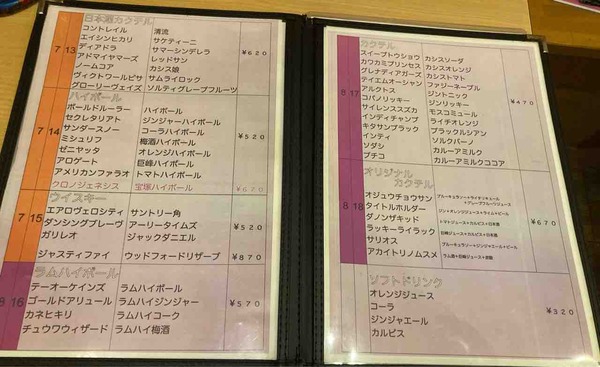 日本酒カクテル
7 13
コントレイル 清流
エイシンヒカリ サケティーニ
ディアドラ サマーシンデレラ
アドマイヤマーズ レッドサン
ノームコア カシス娘
ヴィクトワールピサ サムライロック
グローリーヴェイズ ソルティグレープフルーツ
¥620
ハイボール
7 14
ボールドルーラー ハイボール
セクレタリアト ジンジャーハイボール
サンダースノー コーラハイボール
ミシュリフ 梅酒ハイボール
ゼニヤッタ オレンジハイボール
アロゲート 巨峰ハイボール
アメリカンファラオ トマトハイボール
¥520
クロノジェネシス 宝塚ハイボール ¥670
ウイスキー
7 15
エアロヴェロシティ サントリー角
ダンシングブレーヴ アーリータイムズ
ガリレオ ジャックダニエル
¥520
ジャスティファイ ウッドフォードリザーブ ¥870
ラムハイボール
8 16
テーオーケインズ ラムハイボール
ゴールドアリュール ラムハイジンジャー
カネヒキリ ラムハイコーク
チュウワウィザード ラムハイ梅酒
¥570
カクテル
8 17
スイープトウショウ カシスソーダ
カワカミプリンセス カシスオレンジ
グレナディアガーズ カシストマト
テイエムオーシャン ファジーネーブル
アルクトス ジントニック
コパノリッキー ジンリッキー
サイレンススズカ モスコミュール
インディチャンプ ライチオレンジ
キタサンブラック ブラックルシアン
インティ ソルクバーノ
ソダシ カルーアミルク
ブチコ カルーアミルクココア
¥470
オリジナル
カクテル
8 18
オジュウチョウサン ブルーキュラソー+ライチリキュール
+グレープフルーツジュース
タイトルホルダー ジン+オレンジジュース+ライム+ビール
ダノンザキッド トマトジュース+カルピス+日本酒
ラッキーライラック 巨峰ジュース+カルピス+日本酒
サリオス ブルーキュラソー+ジンジャエール+ビール
アカイトリノムスメ
¥670
ソフトドリンク
オレンジジュース
コーラ
ジンジャエール
カルピス
¥320